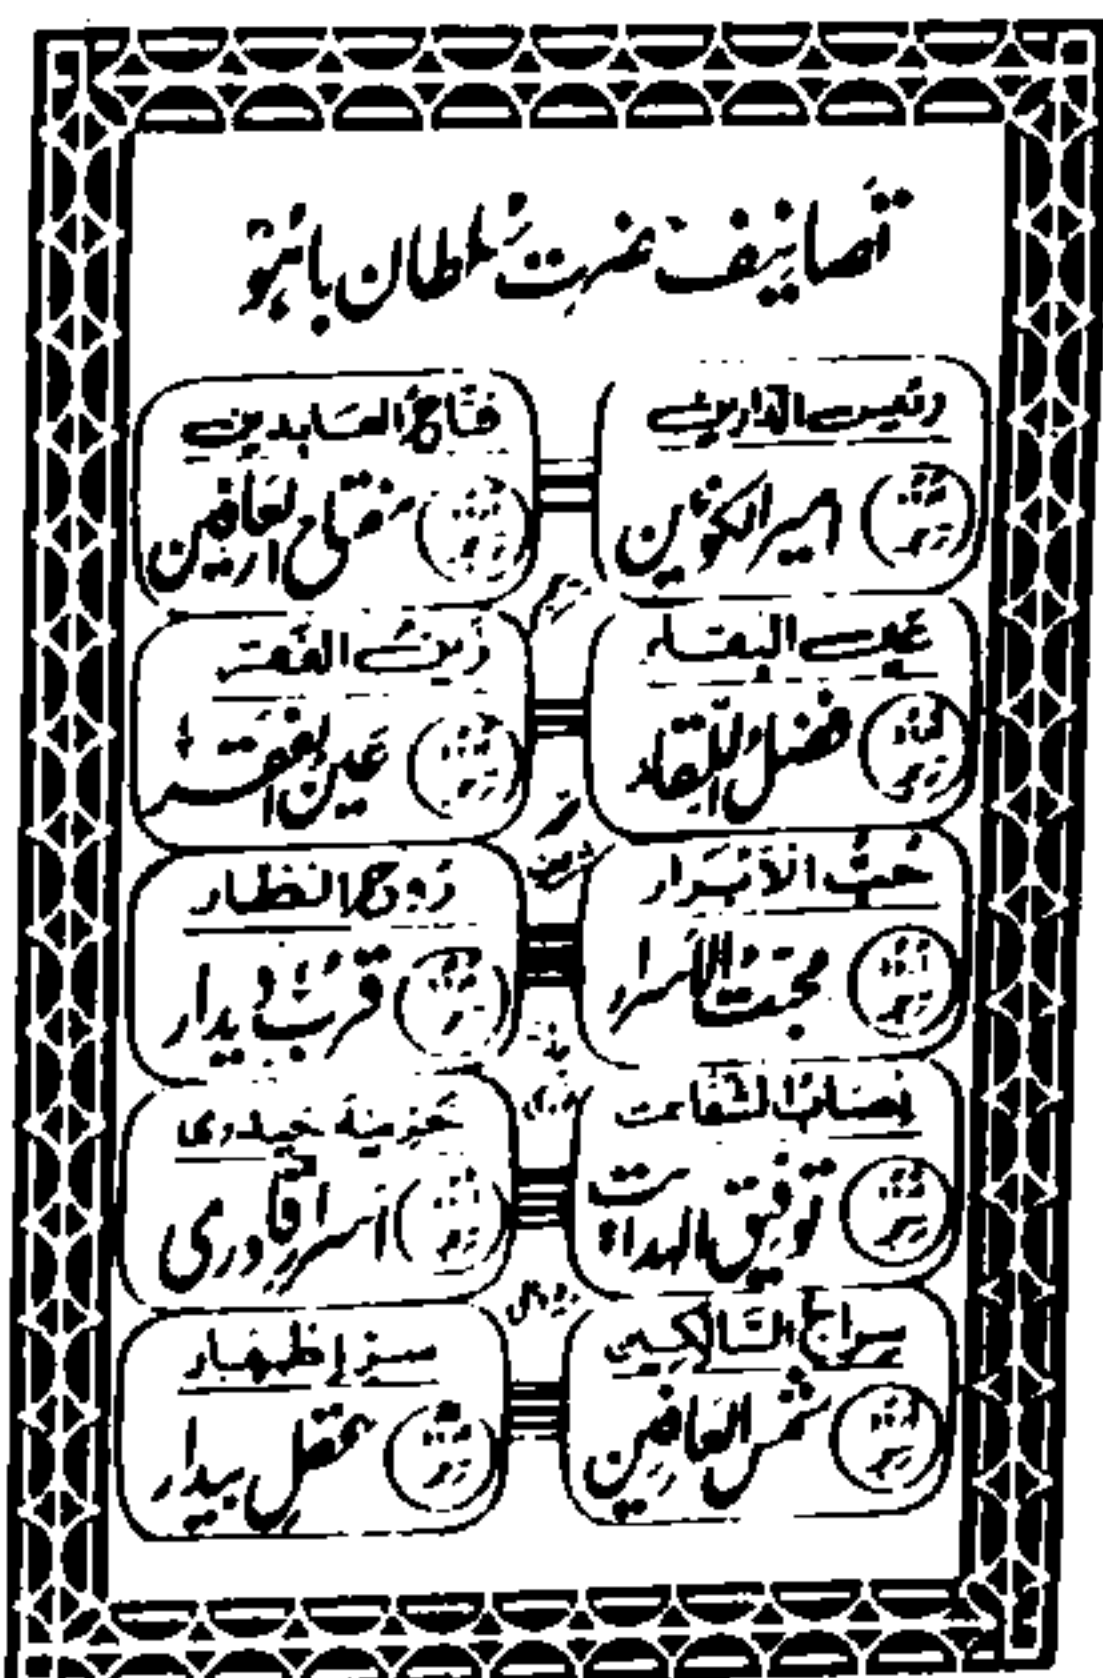 تصانیف حضرت سلطان باہو
رئیس الدارین
اردو ترجمہ امیر الکونین
فتاح العابدین
اردو ترجمہ مفتاح العارفین
عین البقاء
اردو ترجمہ فضل اللقاء
زین الفقر
اردو ترجمہ عین الفقر
حُبّ الأبرار
اردو ترجمہ محبت الاسرار
روح النظار
اردو ترجمہ قرب دیدار
نصاب الشفاعت
اردو ترجمہ توفیق الہدایت
خزینہ حیدری
اردو ترجمہ اسرار قادری
سراج السالکین
اردو ترجمہ شمس العارفین
سرّ اظہار
اردو ترجمہ عقل بیدار